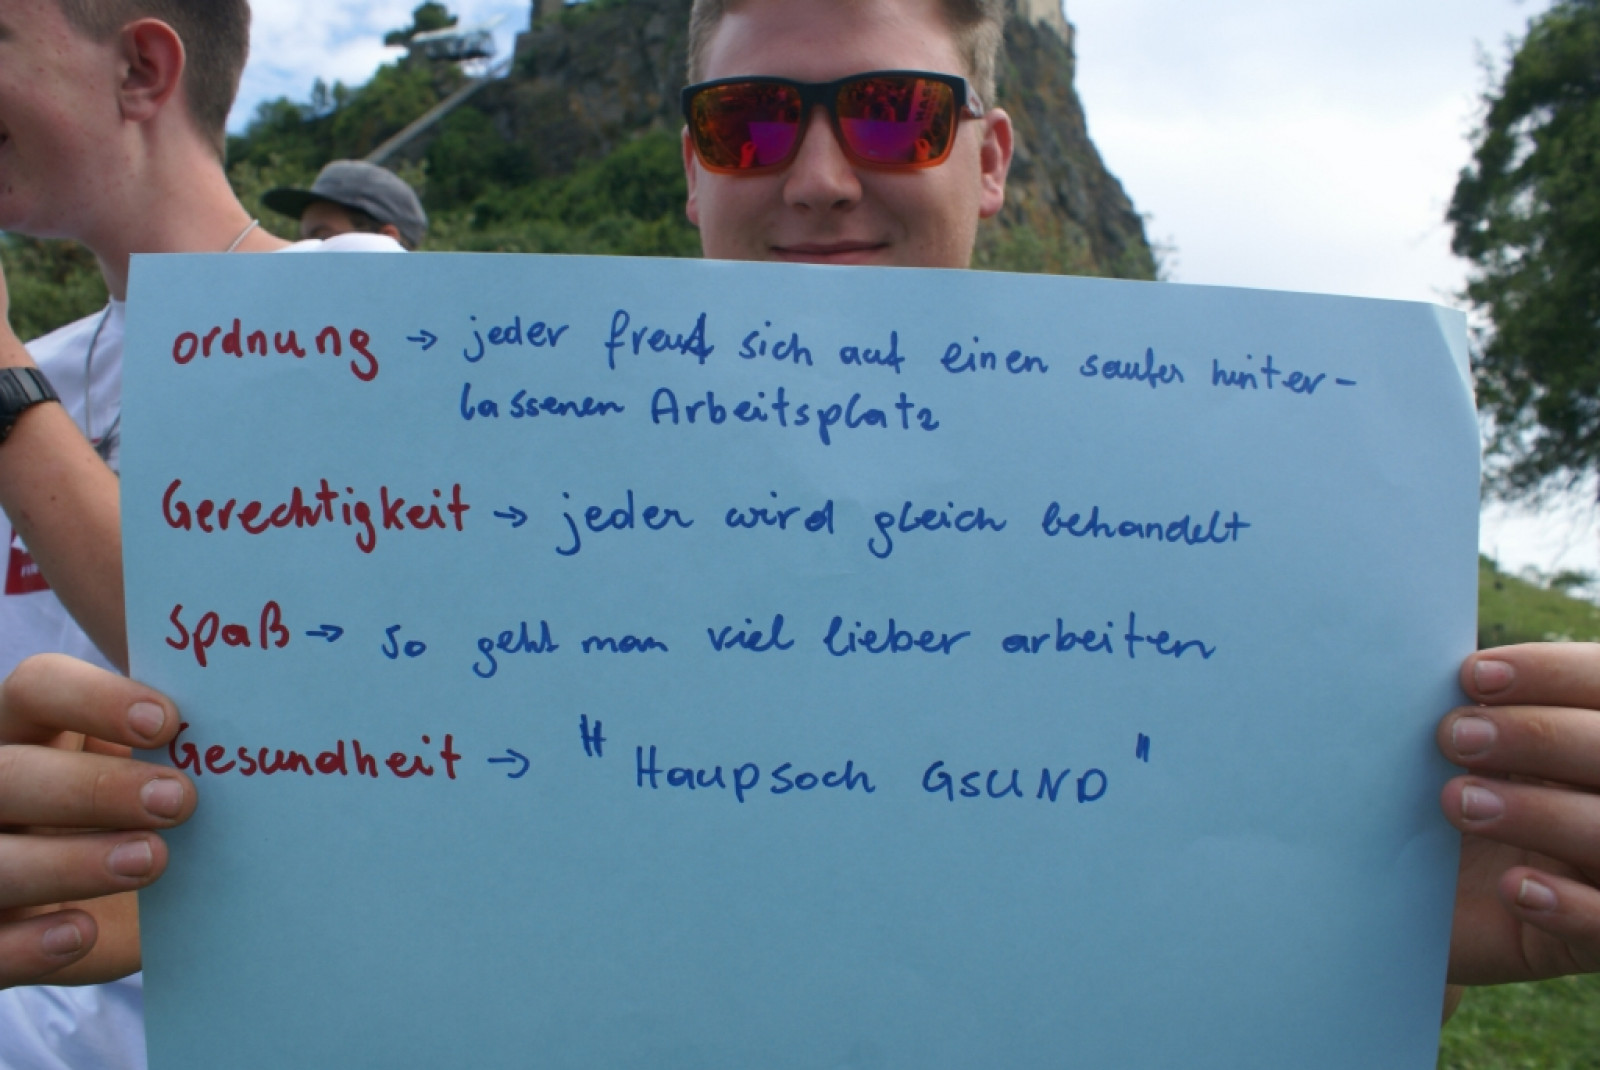 ordnung → jeder freut sich auf einen sauber hinter-
lassenen Arbeitsplatz
Gerechtigkeit → jeder wird gleich behandelt
Spaß → so geht man viel lieber arbeiten
Gesundheit → " Haupsoch GSUND "